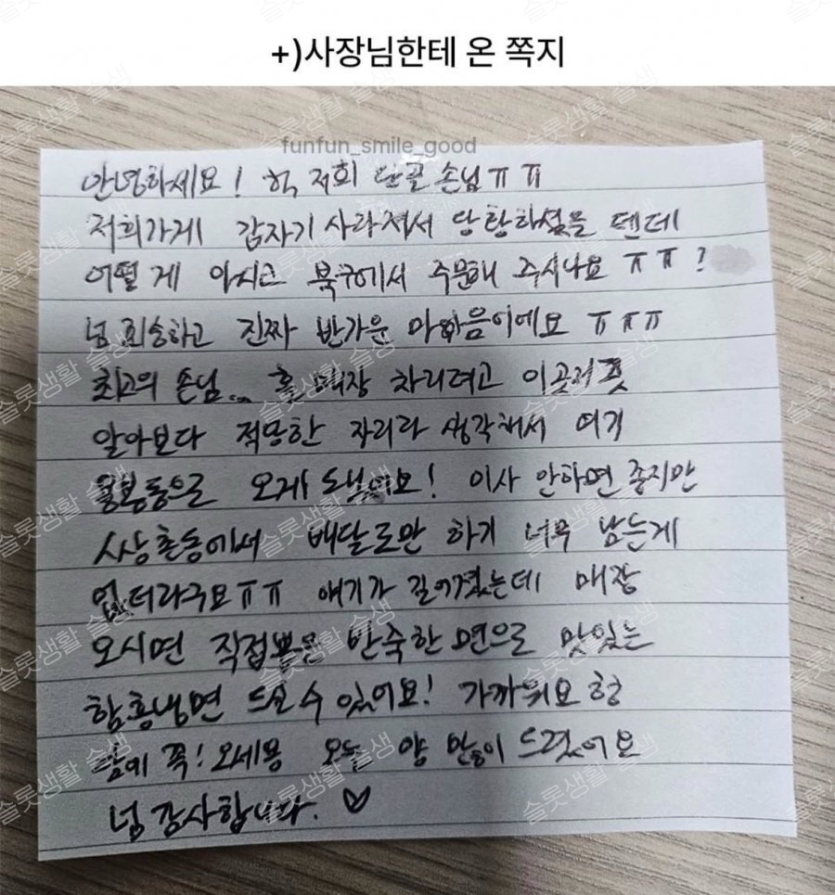 +)사장님한테 온 쪽지
funfun_smile_good
안녕하세요! 헉 저희 단골 손님ㅠㅠ
저희가게 갑자기 사라져서 당황하셨을 텐데
어떻게 아시고 북구에서 주문해 주시나요 ㅠㅠ?
넘 죄송하고 진짜 반가운 마음이에요 ㅠㅠㅠ
최고의 손님.. 홀 매장 차리려고 이곳저곳
알아보다 적당한 자리라 생각해서 여기
용봉동으로 오게 됐어요! 이사 안하면 좋지만
상촌동에서 배달로만 하기 너무 남는게
없더라구요ㅠㅠ 얘기가 길어졌는데 매장
오시면 직접 반죽한 면으로 맛있는
함흥냉면 드실 수 있어요! 가까워요
담에 꼭! 오세용 오늘 양 많이 드렸어요
넘 감사합니다. ♡
슬롯생활 슬생